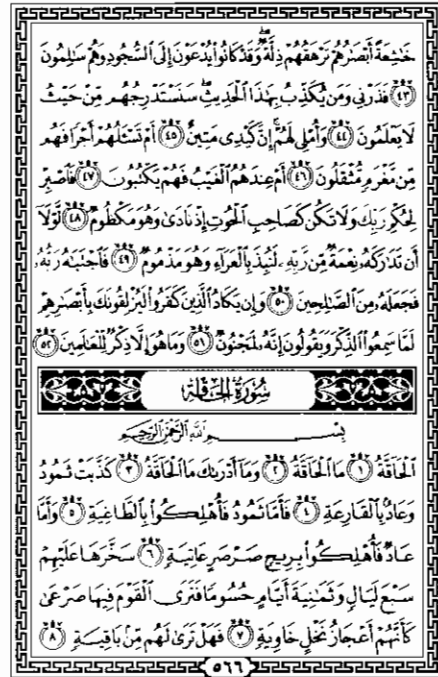 خَٰشِعَةً أَبْصَٰرُهُمْ تَرْهَقُهُمْ ذِلَّةٌۖ وَقَدْ كَانُوا۟ يُدْعَوْنَ إِلَى ٱلسُّجُودِ وَهُمْ سَٰلِمُونَ
﴿٤٣﴾ فَذَرْنِى وَمَن يُكَذِّبُ بِهَٰذَا ٱلْحَدِيثِۖ سَنَسْتَدْرِجُهُم مِّنْ حَيْثُ
لَا يَعْلَمُونَ ﴿٤٤﴾ وَأُمْلِى لَهُمْۚ إِنَّ كَيْدِى مَتِينٌ ﴿٤٥﴾ أَمْ تَسْـَٔلُهُمْ أَجْرًا فَهُم
مِّن مَّغْرَمٍ مُّثْقَلُونَ ﴿٤٦﴾ أَمْ عِندَهُمُ ٱلْغَيْبُ فَهُمْ يَكْتُبُونَ ﴿٤٧﴾ فَٱصْبِرْ
لِحُكْمِ رَبِّكَ وَلَا تَكُن كَصَاحِبِ ٱلْحُوتِ إِذْ نَادَىٰ وَهُوَ مَكْظُومٌ ﴿٤٨﴾ لَّوْلَآ
أَن تَدَٰرَكَهُۥ نِعْمَةٌ مِّن رَّبِّهِۦ لَنُبِذَ بِٱلْعَرَآءِ وَهُوَ مَذْمُومٌ ﴿٤٩﴾ فَٱجْتَبَٰهُ رَبُّهُۥ
فَجَعَلَهُۥ مِنَ ٱلصَّٰلِحِينَ ﴿٥٠﴾ وَإِن يَكَادُ ٱلَّذِينَ كَفَرُوا۟ لَيُزْلِقُونَكَ بِأَبْصَٰرِهِمْ
لَمَّا سَمِعُوا۟ ٱلذِّكْرَ وَيَقُولُونَ إِنَّهُۥ لَمَجْنُونٌ ﴿٥١﴾ وَمَا هُوَ إِلَّا ذِكْرٌ لِّلْعَٰلَمِينَ ﴿٥٢﴾
سُورَةُ الْحَاقَّةِ
بِسْمِ ٱللَّهِ ٱلرَّحْمَٰنِ ٱلرَّحِيمِ
ٱلْحَآقَّةُ ﴿١﴾ مَا ٱلْحَآقَّةُ ﴿٢﴾ وَمَآ أَدْرَىٰكَ مَا ٱلْحَآقَّةُ ﴿٣﴾ كَذَّبَتْ ثَمُودُ
وَعَادٌۢ بِٱلْقَارِعَةِ ﴿٤﴾ فَأَمَّا ثَمُودُ فَأُهْلِكُوا۟ بِٱلطَّاغِيَةِ ﴿٥﴾ وَأَمَّا
عَادٌ فَأُهْلِكُوا۟ بِرِيحٍ صَرْصَرٍ عَاتِيَةٍ ﴿٦﴾ سَخَّرَهَا عَلَيْهِمْ
سَبْعَ لَيَالٍ وَثَمَٰنِيَةَ أَيَّامٍ حُسُومًا فَتَرَى ٱلْقَوْمَ فِيهَا صَرْعَىٰ
كَأَنَّهُمْ أَعْجَازُ نَخْلٍ خَاوِيَةٍ ﴿٧﴾ فَهَلْ تَرَىٰ لَهُم مِّنۢ بَاقِيَةٍ ﴿٨﴾
٥٦٦